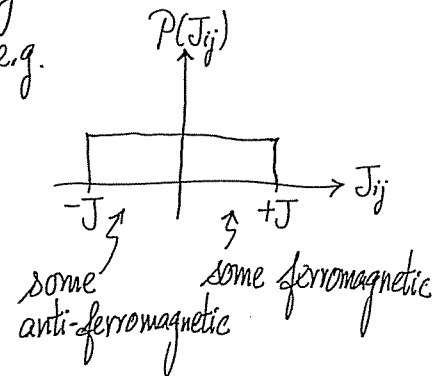 e.g.
P(Jij)
Jij
-J
+J
some anti-ferromagnetic
some ferromagnetic